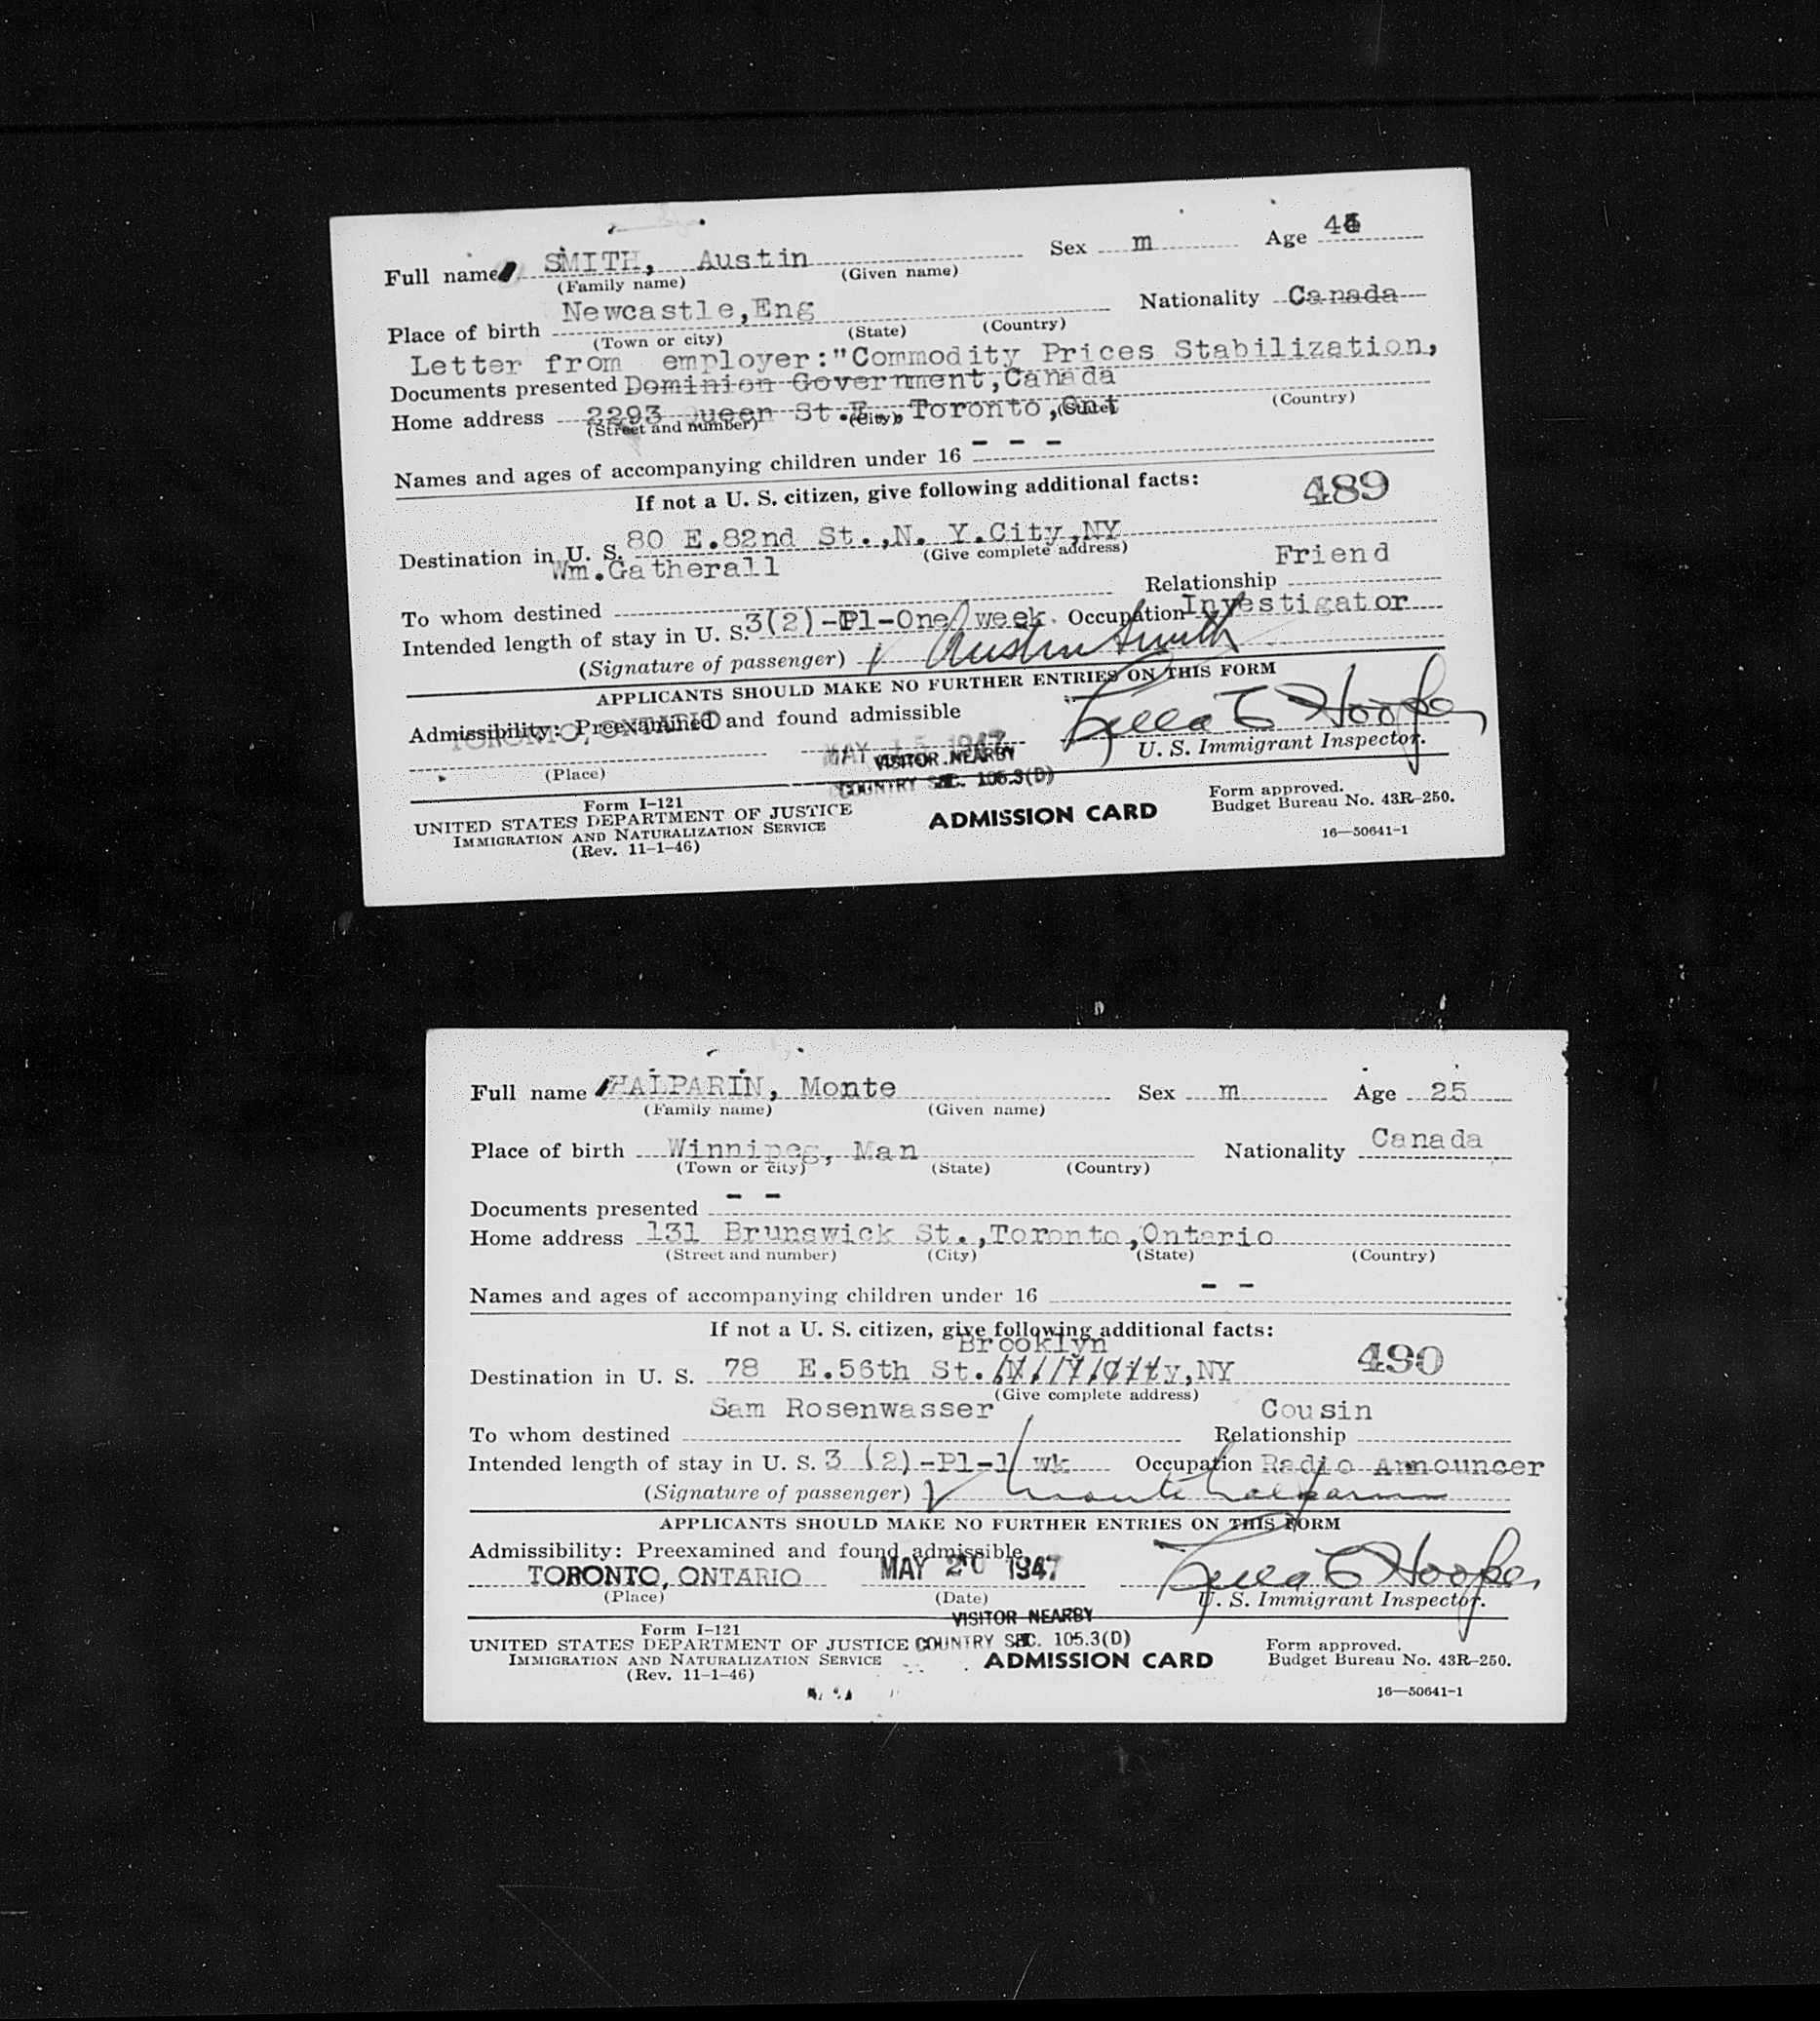 Full name SMITH, Austin Sex m Age
(Family name) (Given name)
Place of birth Newcastle,Eng Nationality Canada
(Town or city) (State) (Country)
Letter from employer:"Commodity Prices Stabilization,
Documents presented Dominion Government,Canada
Home address 2293 Queen St.E.,Toronto,Ont
(Street and number) (City) (State) (Country)
Names and ages of accompanying children under 16 - - -
If not a U. S. citizen, give following additional facts:
489
Destination in U. S. 80 E.82nd St.,N. Y.City,NY
(Give complete address)
To whom destined Wm.Gatherall Relationship Friend
Intended length of stay in U. S. 3(2)-P1-One week Occupation Investigator
(Signature of passenger) Austin Smith
APPLICANTS SHOULD MAKE NO FURTHER ENTRIES ON THIS FORM
Admissibility: Preexamined and found admissible
TORONTO, ONTARIO MAY 15 1947
(Place) U. S. Immigrant Inspector.
VISITOR NEARBY
COUNTRY SEC. 105.3(D)
Form I-121
UNITED STATES DEPARTMENT OF JUSTICE
IMMIGRATION AND NATURALIZATION SERVICE
(Rev. 11-1-46)
ADMISSION CARD
Form approved.
Budget Bureau No. 43R-250.
16—50641-1
Full name HALPARIN, Monte Sex m Age 25
(Family name) (Given name)
Place of birth Winnipeg, Man Nationality Canada
(Town or city) (State) (Country)
Documents presented - -
Home address 131 Brunswick St.,Toronto,Ontario
(Street and number) (City) (State) (Country)
Names and ages of accompanying children under 16 - -
If not a U. S. citizen, give following additional facts:
Brooklyn
490
Destination in U. S. 78 E.56th St.,N. Y.City,NY
(Give complete address)
To whom destined Sam Rosenwasser Relationship Cousin
Intended length of stay in U. S. 3 (2)-P1-1 wk Occupation Radio Announcer
(Signature of passenger) Monte Halparin
APPLICANTS SHOULD MAKE NO FURTHER ENTRIES ON THIS FORM
Admissibility: Preexamined and found admissible
TORONTO, ONTARIO MAY 20 1947
(Place) (Date) U. S. Immigrant Inspector.
VISITOR NEARBY
COUNTRY SEC. 105.3(D)
Form I-121
UNITED STATES DEPARTMENT OF JUSTICE
IMMIGRATION AND NATURALIZATION SERVICE
(Rev. 11-1-46)
ADMISSION CARD
Form approved.
Budget Bureau No. 43R-250.
16—50641-1